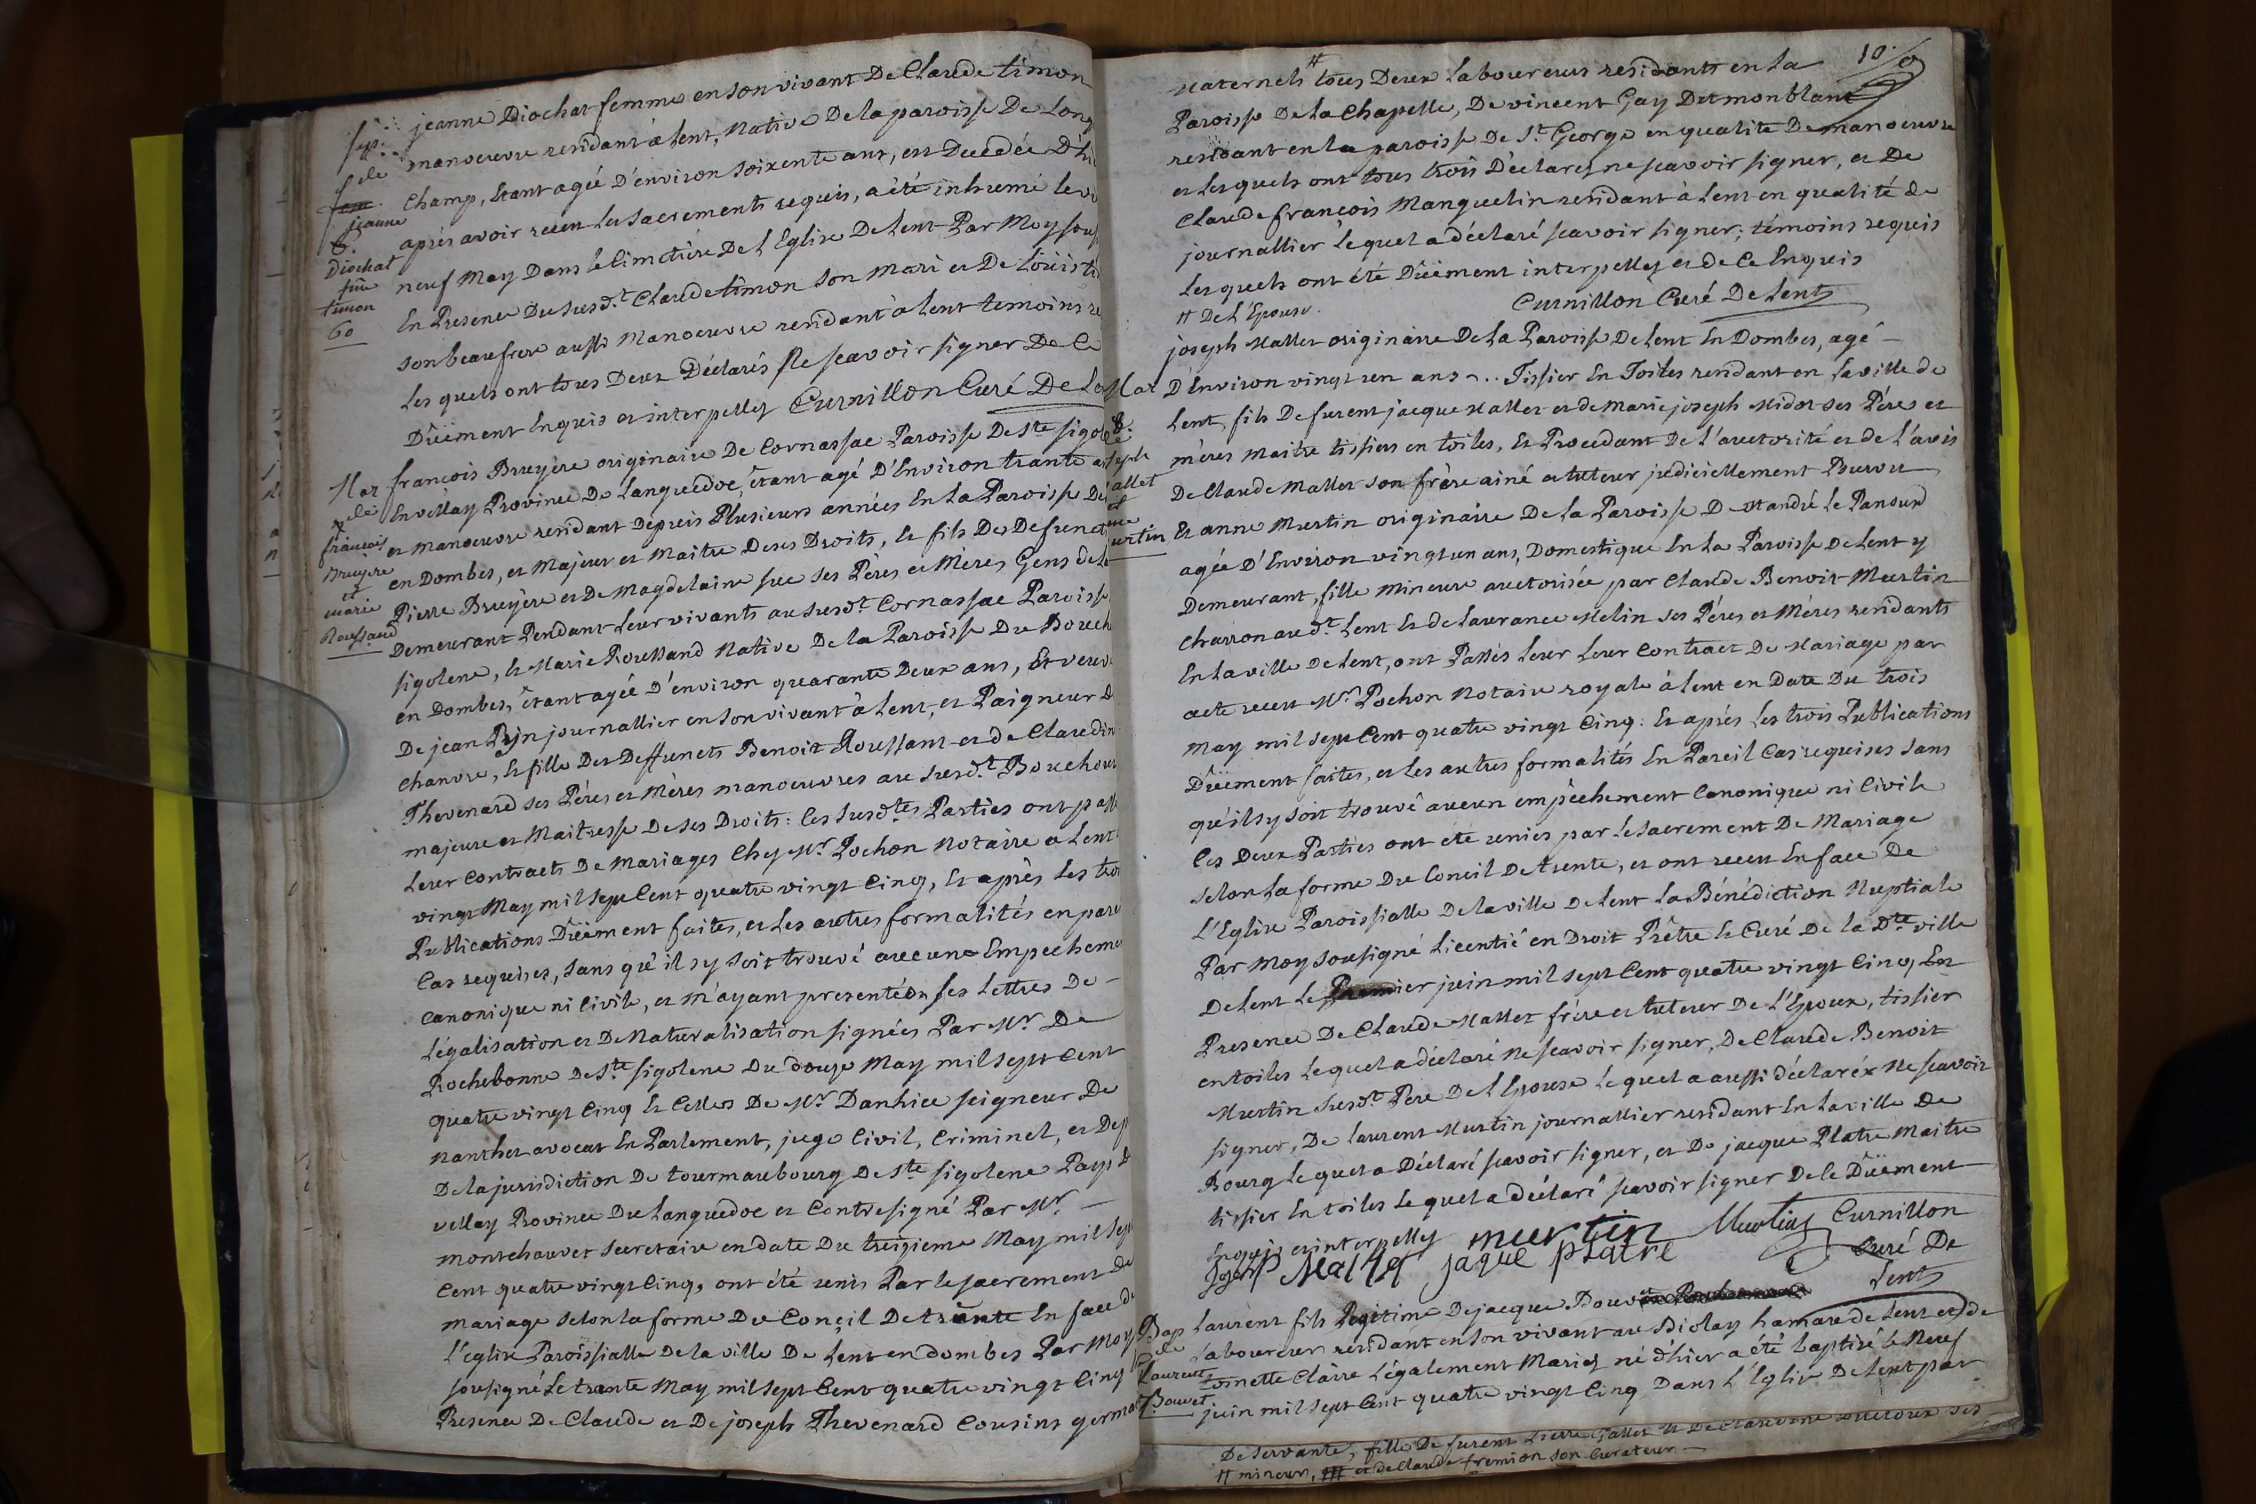 jeanne Diochat femme en son vivant De Claude timon
manoeuvre residant à Lent, Native De la paroisse De Long
Champ, Etant agée D'environ soixente ans, est Decedée D'hi
aprés avoir receu les sacrements requis, a été inhumé le
neuf May Dans le Cimetiére De L'Eglise De Lent Par Moy sous
En Presence Du susd.t Claude timon son Mari et De Loüis
son beaufrere aussi Manoeuvre residant à Lent temoins
Les quels ont tous Deux Déclarés Ne sçavoir signer De Ce
Dûëment Enquis et interpellez Curnillon Curé De
Sep:
jeanne
Diochat
fme
timon
60
françois Bruyère originaire De Cornassac Paroisse De Ste sigol
En vellay Province De Languedoc, êtant agé D'Environ trante
et manoeuvre residant Depuis Plusieurs années En La Paroisse De
en Dombes, et Majeur et Maitre De ses Droits, Et fils De Defunct
Pierre Bruyère et De Magdelaine sue ses Péres et Mères, Gens de
Demeurant Pendant Leur vivants au susd.t Cornassac Paroisse
sigolene, Et Marie Roussand Native De la Paroisse Du Bouch
en Dombes, êtant agée D'environ quarante Deux ans, Et veuve
De jean journallier en son vivant à Lent, et Paigneur D
Chanvre, Et fille Des Deffuncts Benoit Roussant et de Claudin
Thevenard ses Péres et Mères manoeuvres au susd.t Bouchou
majeure et Maitresse De ses Droits: Ces susd.tes Parties ont passé
Leur Contracts De mariages Chez Mr Pochon Notaire a Lent
vingt May mil sept Cent quatre vingt Cinq, Et aprés Les
Publications Dûëment faites, et les autres formalités en pare
Cas requises, sans qu'il sy soit trouvé aucune Empecheme
Canonique ni Civile, et m'ayant presenté ses Lettres De
Légalisation et De Naturalisation signées Par Mr De
Rochebonne De Ste sigolene Du douze May mil sept Cent
quatre vingt Cinq Et Celles De Mr Danhice seigneur De
Nanthet avocat En Parlement, juge Civil, Criminel, et Dep
De la jurisdiction De tourmaubourg De Ste sigolene Pays
vellay Province Du Languedoc et Contresigné Par Mr
montchauvet secretaire en date Du treizieme May mil sept
Cent quatre vingt Cinq, ont été unis Par le sacrement De
mariage selon la forme Du Conçil De trante En face de
L'eglise Paroissialle De la ville De Lent en dombes Par Moy
sousigné Le trante May mil sept Cent quatre vingt Cinq
Presence De Claude et De joseph Thevenard Cousins germa
Mar
françois
Bruyere
et
marie
Roussand
10
Maternels # tous Deux Laboureurs residants en La
Paroisse De La Chapelle, De vincent Gay Detmonblant
residant en la paroisse De St George en qualité De manoeuvre
et Lesquels ont tous trois Déclarez ne sçavoir signer, et De
Claude françois Manguelin residant à Lent en qualité de
journallier lequel a déclaré sçavoir signer; témoins requis
Les quels ont été Dûëment interpellez et de Ce Enquis
# De L'Epouse. Curnillon Curé De Lent
joseph Mallet originaire De La Paroisse De Lent En Dombes, agé
D'Environ vingt un ans Tissier En Toiles residant en la ville de
Lent, fils De furent jacque Mallet et de Marie joseph Midot ses Pére et
mères Maitre tissiers en toiles, Et Procedant De L'auctorité et de L'avis
De Claude Mallet son frère ainé et tuteur judiciellement Pourvu
Et anne Murtin originaire De La Paroisse De St andré Le Panoux
agée D'Environ vingt un ans, Domestique En la Paroisse De Lent y
Demeurant, fille Mineure auctorisée par Claude Benoit Murtin
Charron aud.t Lent Et de Laurance Melin ses Péres et Mères residants
En la ville De Lent, ont Passés Leur Leur Contract De Mariage par
acte receu Mr Pochon Notaire royale à Lent en Date Du trois
May mil sept Cent quatre vingt Cinq: Et aprés les trois Publications
Dûëment faites, et les autres formalités En Pareil Cas requises sans
qu'il sy soit trouvé aucun empêchement Canonique ni Civile
Ces Deux Parties ont été unies par Le sacrement De Mariage
selon La forme Du Concil De trente, et ont receu En face De
L'Eglise Paroissialle De la ville De Lent La Bénédiction Nuptiale
Par Moy sousigné Licentié en Droit Prêtre Et Curé De la Dte ville
De Lent Le Premier juin mil sept Cent quatre vingt Cinq En
Presence De Claude Mallet frére et tuteur De L'Epoux, tissier
en toiles Lequel a déclaré Ne sçavoir signer, De Claude Benoit
Murtin susd.t Pere De L'Epouse Lequel a aussi déclaré Ne sçavoir
signer, De Laurent Murtin journallier residant En La ville De
Bourg Lequel a Déclaré sçavoir signer, et De jacque Platre Maitre
tissier En toiles Lequel a déclaré sçavoir signer De Ce Dûëment
Enquis et interpelly murtin Murtin Curnillon
Joseph Mallet jaque platre Curé De
Lent
Mar
joseph
Mallet
et
Murtin
Laurent fils Legitime De jacque Bouv
Laboureur residant en son vivant au Biolay hamau de Lent et de
Claire Légalement Mariez né d'hier a été baptizé le Neuf
juin mil sept Cent quatre vingt Cinq Dans L'Eglise De Lent par
Bap
Laurent
Bouvet
De servante, fille De furent Pierre Gallet Et De Claudine ses
# mineur, et de Claude fremion son Curateur